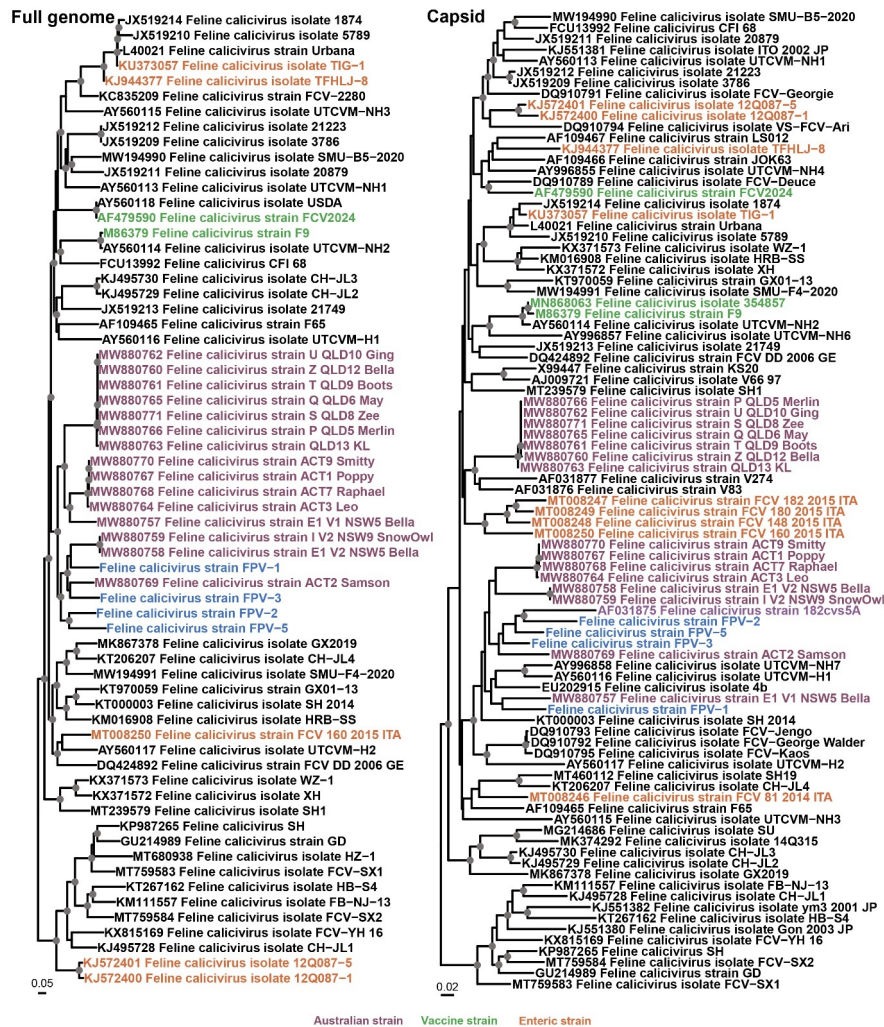 Full genome
JX519214 Feline calicivirus isolate 1874
JX519210 Feline calicivirus isolate 5789
L40021 Feline calicivirus strain Urbana
KU373057 Feline calicivirus isolate TIG−1
KJ944377 Feline calicivirus isolate TFHLJ−8
KC835209 Feline calicivirus strain FCV−2280
AY560115 Feline calicivirus isolate UTCVM−NH3
JX519212 Feline calicivirus isolate 21223
JX519209 Feline calicivirus isolate 3786
MW194990 Feline calicivirus isolate SMU−B5−2020
JX519211 Feline calicivirus isolate 20879
AY560113 Feline calicivirus isolate UTCVM−NH1
AY560118 Feline calicivirus isolate USDA
AF479590 Feline calicivirus strain FCV2024
M86379 Feline calicivirus strain F9
AY560114 Feline calicivirus isolate UTCVM−NH2
FCU13992 Feline calicivirus CFI 68
KJ495730 Feline calicivirus isolate CH−JL3
KJ495729 Feline calicivirus isolate CH−JL2
JX519213 Feline calicivirus isolate 21749
AF109465 Feline calicivirus strain F65
AY560116 Feline calicivirus isolate UTCVM−H1
MW880762 Feline calicivirus strain U QLD10 Ging
MW880760 Feline calicivirus strain Z QLD12 Bella
MW880761 Feline calicivirus strain T QLD9 Boots
MW880765 Feline calicivirus strain Q QLD6 May
MW880771 Feline calicivirus strain S QLD8 Zee
MW880766 Feline calicivirus strain P QLD5 Merlin
MW880763 Feline calicivirus strain QLD13 KL
MW880770 Feline calicivirus strain ACT9 Smitty
MW880767 Feline calicivirus strain ACT1 Poppy
MW880768 Feline calicivirus strain ACT7 Raphael
MW880764 Feline calicivirus strain ACT3 Leo
MW880757 Feline calicivirus strain E1 V1 NSW5 Bella
MW880759 Feline calicivirus strain I V2 NSW9 SnowOwl
MW880758 Feline calicivirus strain E1 V2 NSW5 Bella
Feline calicivirus strain FPV−1
MW880769 Feline calicivirus strain ACT2 Samson
Feline calicivirus strain FPV−3
Feline calicivirus strain FPV−2
Feline calicivirus strain FPV−5
MK867378 Feline calicivirus isolate GX2019
KT206207 Feline calicivirus isolate CH−JL4
MW194991 Feline calicivirus isolate SMU−F4−2020
KT970059 Feline calicivirus strain GX01−13
KT000003 Feline calicivirus isolate SH 2014
KM016908 Feline calicivirus isolate HRB−SS
MT008250 Feline calicivirus strain FCV 160 2015 ITA
AY560117 Feline calicivirus isolate UTCVM−H2
DQ424892 Feline calicivirus strain FCV DD 2006 GE
KX371573 Feline calicivirus isolate WZ−1
KX371572 Feline calicivirus isolate XH
MT239579 Feline calicivirus isolate SH1
KP987265 Feline calicivirus SH
GU214989 Feline calicivirus strain GD
MT680938 Feline calicivirus isolate HZ−1
MT759583 Feline calicivirus isolate FCV−SX1
KT267162 Feline calicivirus isolate HB−S4
KM111557 Feline calicivirus isolate FB−NJ−13
MT759584 Feline calicivirus isolate FCV−SX2
KX815169 Feline calicivirus isolate FCV−YH 16
KJ495728 Feline calicivirus isolate CH−JL1
KJ572401 Feline calicivirus isolate 12Q087−5
KJ572400 Feline calicivirus isolate 12Q087−1
0.05
Capsid
MW194990 Feline calicivirus isolate SMU−B5−2020
FCU13992 Feline calicivirus CFI 68
JX519211 Feline calicivirus isolate 20879
KJ551381 Feline calicivirus isolate ITO 2002 JP
AY560113 Feline calicivirus isolate UTCVM−NH1
JX519212 Feline calicivirus isolate 21223
JX519209 Feline calicivirus isolate 3786
DQ910791 Feline calicivirus isolate FCV−Georgie
KJ572401 Feline calicivirus isolate 12Q087−5
KJ572400 Feline calicivirus isolate 12Q087−1
DQ910794 Feline calicivirus isolate VS−FCV−Ari
AF109467 Feline calicivirus strain LS012
KJ944377 Feline calicivirus isolate TFHLJ−8
AF109466 Feline calicivirus strain JOK63
AY996855 Feline calicivirus isolate UTCVM−NH4
DQ910789 Feline calicivirus isolate FCV−Deuce
AF479590 Feline calicivirus strain FCV2024
JX519214 Feline calicivirus isolate 1874
KU373057 Feline calicivirus isolate TIG−1
L40021 Feline calicivirus strain Urbana
JX519210 Feline calicivirus isolate 5789
KX371573 Feline calicivirus isolate WZ−1
KM016908 Feline calicivirus isolate HRB−SS
KX371572 Feline calicivirus isolate XH
KT970059 Feline calicivirus strain GX01−13
MW194991 Feline calicivirus isolate SMU−F4−2020
MN868063 Feline calicivirus isolate 354857
M86379 Feline calicivirus strain F9
AY560114 Feline calicivirus isolate UTCVM−NH2
AY996857 Feline calicivirus isolate UTCVM−NH6
JX519213 Feline calicivirus isolate 21749
DQ424892 Feline calicivirus strain FCV DD 2006 GE
X99447 Feline calicivirus strain KS20
AJ009721 Feline calicivirus isolate V66 97
MT239579 Feline calicivirus isolate SH1
MW880766 Feline calicivirus strain P QLD5 Merlin
MW880762 Feline calicivirus strain U QLD10 Ging
MW880771 Feline calicivirus strain S QLD8 Zee
MW880765 Feline calicivirus strain Q QLD6 May
MW880761 Feline calicivirus strain T QLD9 Boots
MW880760 Feline calicivirus strain Z QLD12 Bella
MW880763 Feline calicivirus strain QLD13 KL
AF031877 Feline calicivirus strain V274
AF031876 Feline calicivirus strain V83
MT008247 Feline calicivirus strain FCV 182 2015 ITA
MT008249 Feline calicivirus strain FCV 180 2015 ITA
MT008248 Feline calicivirus strain FCV 148 2015 ITA
MT008250 Feline calicivirus strain FCV 160 2015 ITA
MW880770 Feline calicivirus strain ACT9 Smitty
MW880767 Feline calicivirus strain ACT1 Poppy
MW880768 Feline calicivirus strain ACT7 Raphael
MW880764 Feline calicivirus strain ACT3 Leo
MW880758 Feline calicivirus strain E1 V2 NSW5 Bella
MW880759 Feline calicivirus strain I V2 NSW9 SnowOwl
AF031875 Feline calicivirus strain 182cvs5A
Feline calicivirus strain FPV−2
Feline calicivirus strain FPV−5
Feline calicivirus strain FPV−3
MW880769 Feline calicivirus strain ACT2 Samson
AY996858 Feline calicivirus isolate UTCVM−NH7
AY560116 Feline calicivirus isolate UTCVM−H1
EU202915 Feline calicivirus isolate 4b
MW880757 Feline calicivirus strain E1 V1 NSW5 Bella
Feline calicivirus strain FPV−1
KT000003 Feline calicivirus isolate SH 2014
DQ910793 Feline calicivirus isolate FCV−Jengo
DQ910792 Feline calicivirus isolate FCV−George Walder
DQ910795 Feline calicivirus isolate FCV−Kaos
AY560117 Feline calicivirus isolate UTCVM−H2
MT460112 Feline calicivirus isolate SH19
KT206207 Feline calicivirus isolate CH−JL4
MT008246 Feline calicivirus strain FCV 81 2014 ITA
AF109465 Feline calicivirus strain F65
AY560115 Feline calicivirus isolate UTCVM−NH3
MG214686 Feline calicivirus isolate SU
MK374292 Feline calicivirus isolate 14Q315
KJ495730 Feline calicivirus isolate CH−JL3
KJ495729 Feline calicivirus isolate CH−JL2
MK867378 Feline calicivirus isolate GX2019
KM111557 Feline calicivirus isolate FB−NJ−13
KJ495728 Feline calicivirus isolate CH−JL1
KJ551382 Feline calicivirus isolate ym3 2001 JP
KT267162 Feline calicivirus isolate HB−S4
KJ551380 Feline calicivirus isolate Gon 2003 JP
KX815169 Feline calicivirus isolate FCV−YH 16
KP987265 Feline calicivirus SH
MT759584 Feline calicivirus isolate FCV−SX2
GU214989 Feline calicivirus strain GD
MT759583 Feline calicivirus isolate FCV−SX1
0.02
Australian strain Vaccine strain Enteric strain